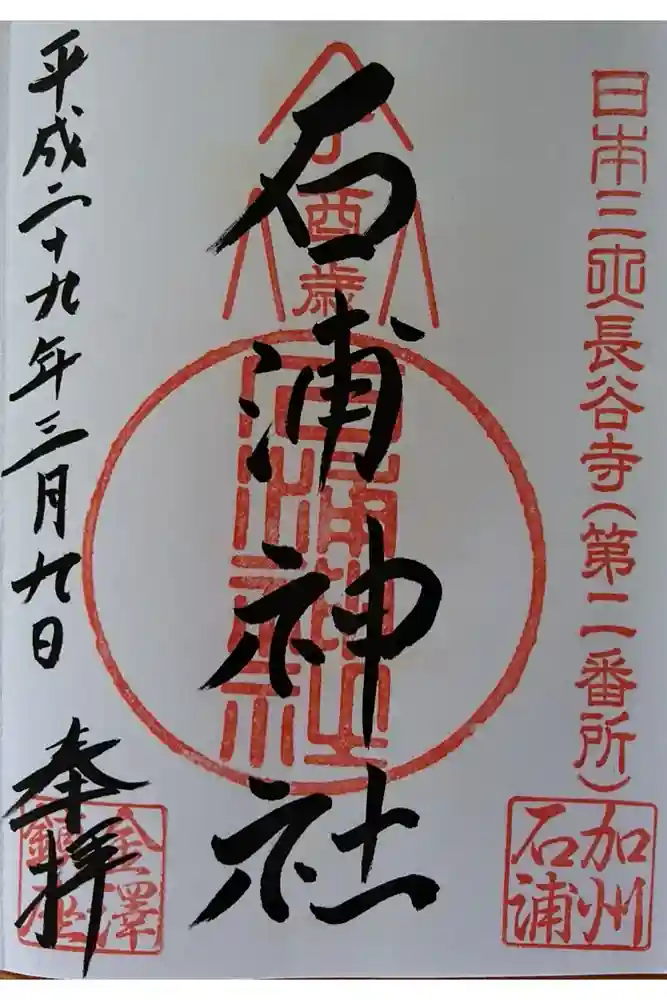 日本三大長谷寺(第二番所)
加州
石浦
酉歳
石浦神社
石浦神社
平成二十九年三月九日
奉拝
金澤
鎮座